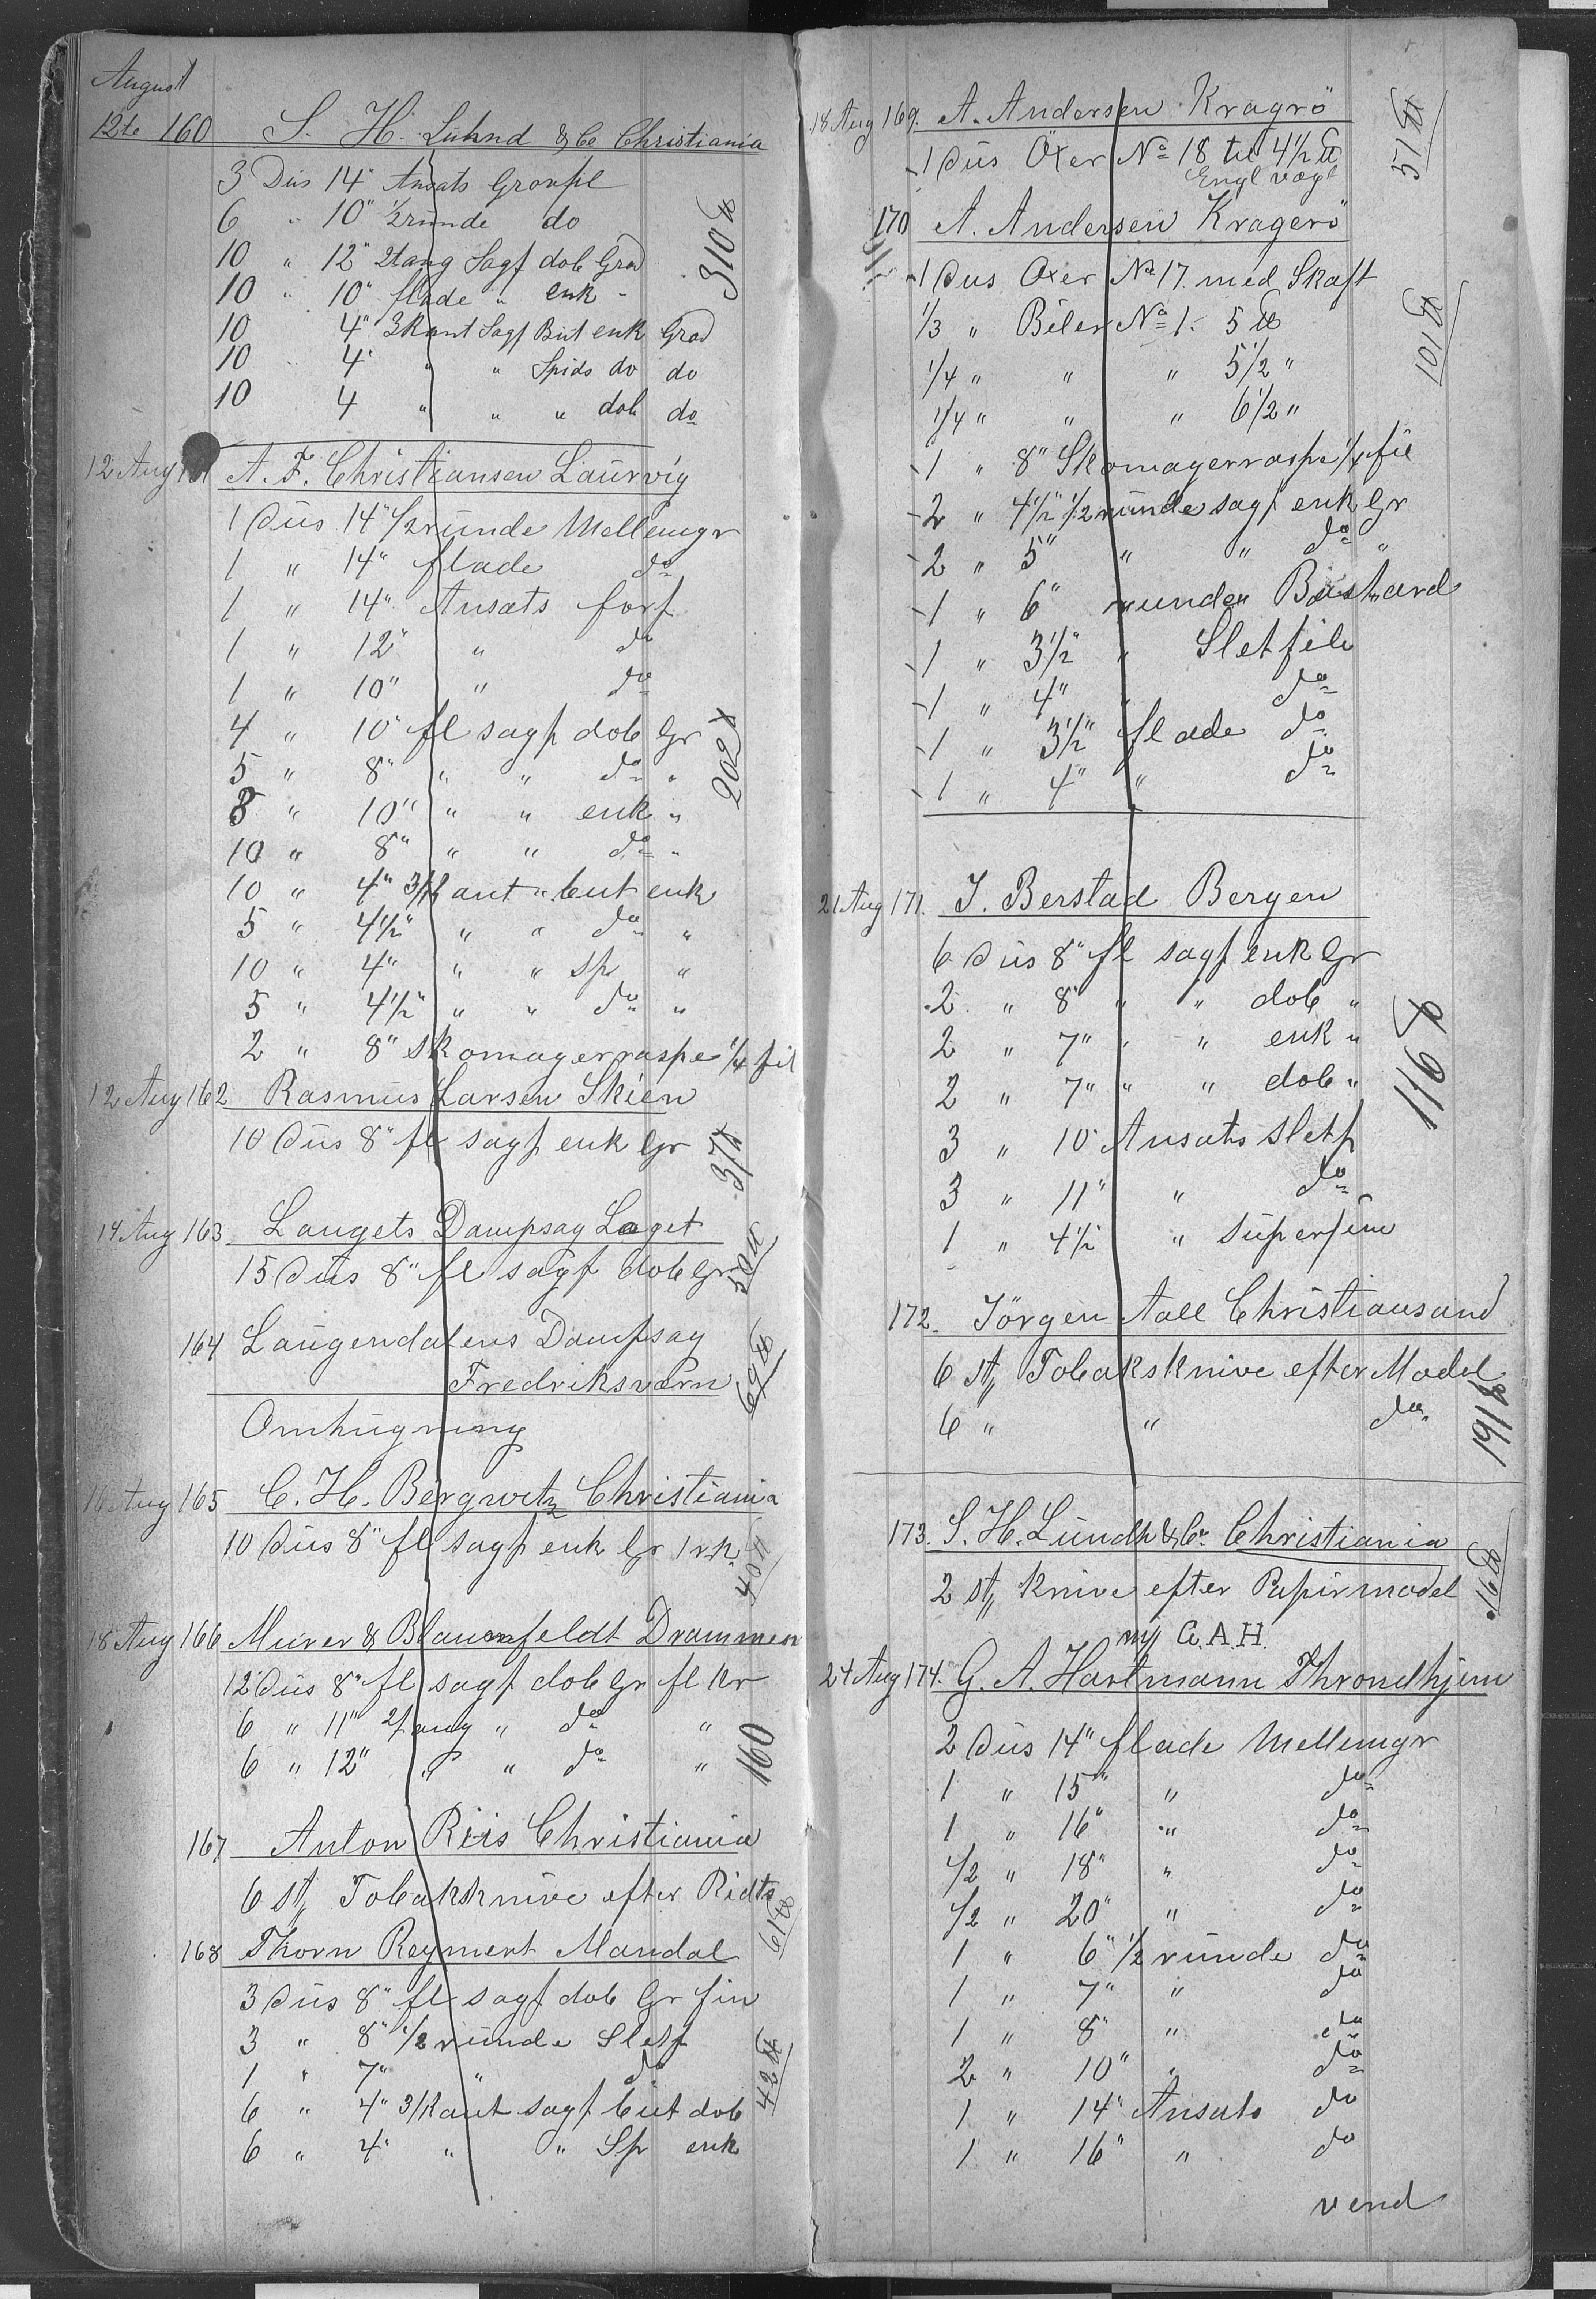 August
12te 160 S. H. Luhnd & Co Christiania
3 Dus 14" Ansats Grovfl
6 " 10" ½runde do
10 " 12" 2tang Sagf dob Grad
10 " 10" flade " enk "
10 4" 3Kant Sagf But enk Grad
10 " 4" " " Spids do do
10 4 " " " dob do
310 ℔
12 Aug 161 A. F. Christiansen Laurvig
1 Dus 14" ½runde Mellemgr
1 " 14" flade do
1 " 14" Ansats forf
1 " 12" " do
1 " 10" " do
4 " 10" fl sagf dob Gr
5 " 8" " " do "
8 " 10" " " enk "
10 " 8" " " do "
10 " 4" 3/Kant " but enk
5 " 4½" " " do "
10 " 4" " " sp "
5 " 4½" " " do "
2 " 8" Skomagerraspe ¼ fil
202 ℔
12 Aug 162 Rasmus Larsen Skien
10 Dus 8" fl sagf enk Gr
37 ℔
14 Aug 163 Laugets Dampsag Laget
15 Dus 8" fl sagf dob Gr
50 ℔
164 Laugendalens Dampsag
Fredriksværn
Omhugning
69 ℔
16 Aug 165 C. H. Bergwitz Christiania
10 Dus 8" fl sagf enk Gr 1 rk.
40 ℔
18 Aug 166 Murer & Blaunfeldt Drammen
12 Dus 8" fl sagf dob Gr fl Kr
6 " 11" 2/tang " do "
6 " 12" " " do "
160
167 Anton Riis Christiania
6 st, Tobaksknive efter Ridts
61 ℔
168 Thorn Reymert Mandal
3 Dus 8" fl sagf dob Gr fin
3 " 8" ½ runde Sletf
1 " 7" " do
6 " 4" 3/Kant sagf but dob
6 " 4" " " Sp enk
42 ℔
18 Aug 169. A. Andersen Kragrö
1 Dus Öxer No 18 til 4½ ℔
Engl vægt
51 ℔
170 A. Andersen Kragerö
1 Dus Oxer No 17. med Skaft
1/3 " Biler No 1. 5 ℔
1/4 " " " 5½ "
1/4 " " " 6½ "
1 " 8" Skomagerraspe ¼ fil
2 " 4½" ½runde sagf enk Gr
2 " 5" " " do "
1 " 6" runde Bastard
1 " 3½" " Sletfile
1 " 4" " do
1 " 3½" flade do
1 " 4" " do
101 ℔
21 Aug 171. J. Berstad Bergen
6 Dus 8" fl sagf enk Gr
2 " 8" " " dob "
2 " 7" " " enk "
2 " 7" " " dob "
3 " 10" Ansats sletf
3 " 11" " do
1 " 4½ " superfin
116 ℔
172. Jörgen Aall Christiansand
6 st, Tobaksknive efter Model
6 " " do
191 ℔
173. S. H. Lundh & Co. Christiania
2 st, Knive efter Papirmodel
16 ℔
m/ G. A. H.
24 Aug 174. G. A. Hartmann Throndhjem
2 Dus 14" flade Mellemgr
1 " 15" " do
1 " 16" " do
1/2 " 18" " do
1/2 " 20" " do
1 " 6" ½ runde do
1 " 7" " do
1 " 8" " do
2 " 10" " do
1 " 14" Ansats do
1 " 16" " do
vend